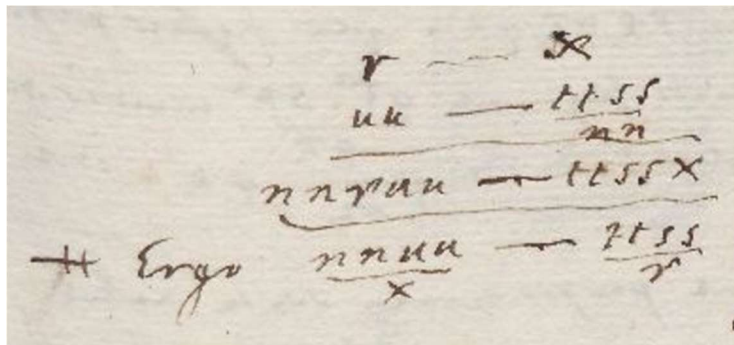 r — x
uu — ttss
nn
nnruu — ttssx
⧺ Ergo nnuu — ttss
x r